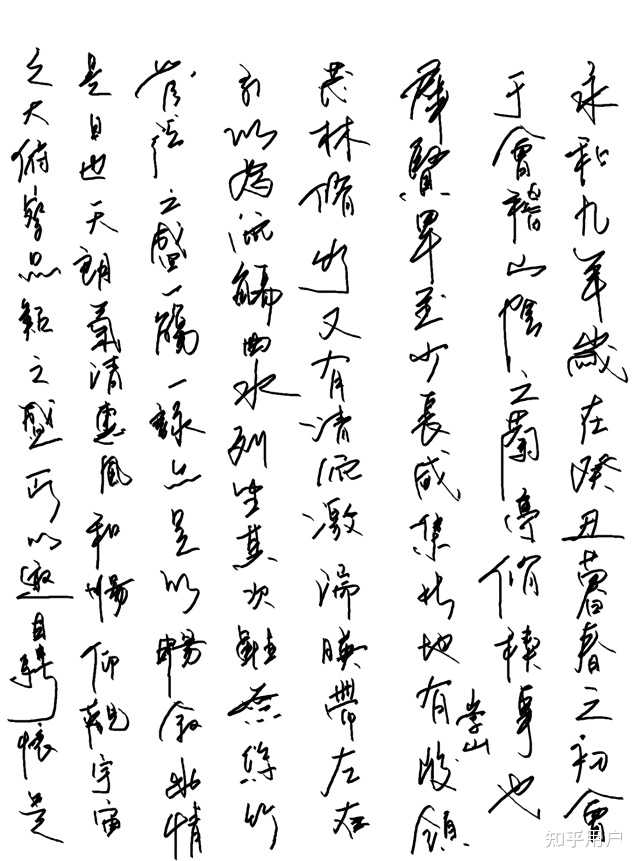 永和九年歲在癸丑暮春之初會
于會稽山陰之蘭亭脩禊事也
羣賢畢至少長咸集此地有崇山峻領
茂林脩竹又有清流激湍暎帶左右
引以為流觴曲水列坐其次雖無絲竹
管弦之盛一觴一詠亦足以暢敘幽情
是日也天朗氣清惠風和暢仰觀宇宙
之大俯察品類之盛所以遊目騁懷足
知乎用户